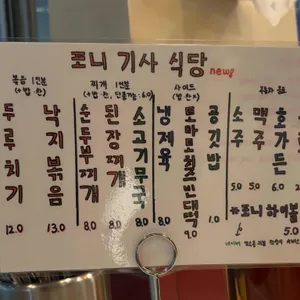 포니 기사 식당 news
볶음 1인분
(+밥·찬)
찌개 1인분
사이드
두루치기
낙지볶음
순두부찌개
된장찌개
소고기무국
냉제육
토마토치즈빈대떡
콩깃밥
소주
맥주
호가든
12.0 13.0 8.0 8.0 8.0 8.0 9.0 1.0 5.0 5.0 6.0
*포니 하이볼
5.0